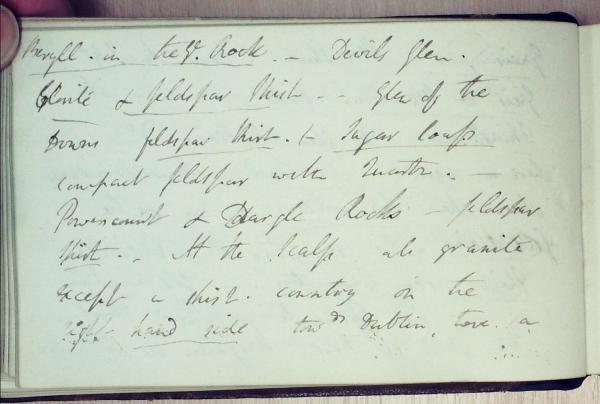 Beryll. in the Gt. Rock. - Devils Glen.
Clorite & feldspar Shist - - Glen of the
Downs feldspar Shist. & Sugar loafs
compact feldspar with Quartz. -
Powerscourt & Dargle Rocks - feldspar
Shist. - At the Scalp all granite
except a shist. country on the
right hand side towds Dublin, a